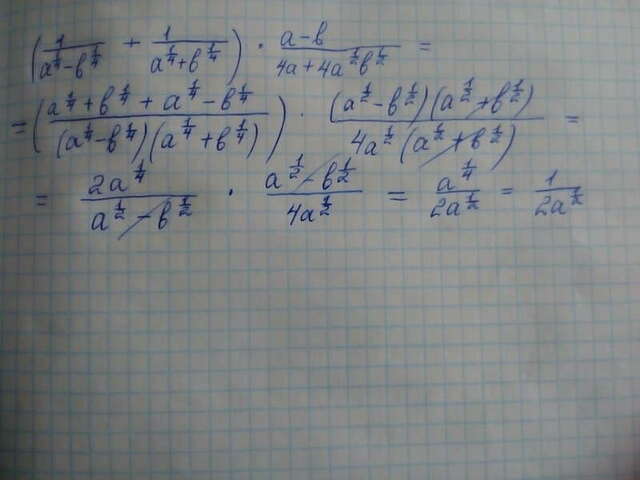 (1/(a^(1/4)-b^(1/4)) + 1/(a^(1/4)+b^(1/4))) · (a-b)/(4a+4a^(1/2)b^(1/2)) =
= ((a^(1/4)+b^(1/4)+a^(1/4)-b^(1/4))/((a^(1/4)-b^(1/4))(a^(1/4)+b^(1/4)))) · ((a^(1/2)-b^(1/2))(a^(1/2)+b^(1/2)))/(4a^(1/2)(a^(1/2)+b^(1/2))) =
= 2a^(1/4)/(a^(1/2)-b^(1/2)) · (a^(1/2)-b^(1/2))/(4a^(1/2)) = a^(1/4)/(2a^(1/2)) = 1/(2a